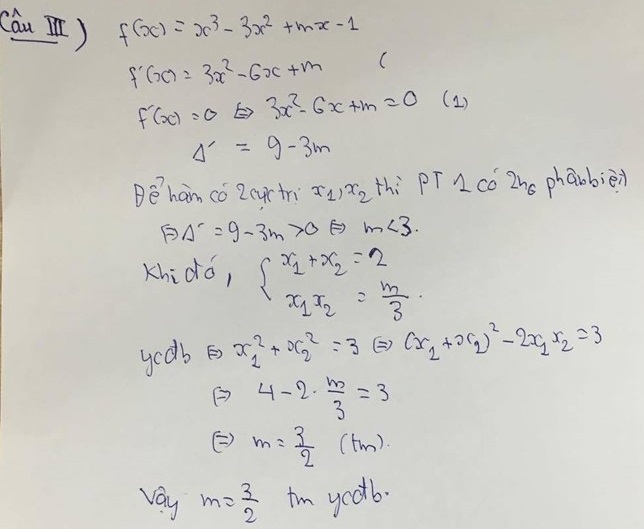 Câu III) f(x) = x³ - 3x² + mx - 1
f'(x) = 3x² - 6x + m (
f'(x) = 0 ⇔ 3x² - 6x + m = 0 (1)
Δ' = 9 - 3m
Để hàm có 2 cực trị x₁, x₂ thì PT 1 có 2n₀ phân biệt
⇔ Δ' = 9 - 3m > 0 ⇔ m < 3.
Khi đó, { x₁ + x₂ = 2
x₁x₂ = m/3.
ycđb ⇔ x₁² + x₂² = 3 ⇔ (x₁ + x₂)² - 2x₁x₂ = 3
⇔ 4 - 2. m/3 = 3
⇔ m = 3/2 (tm).
Vậy m = 3/2 tm ycđb.